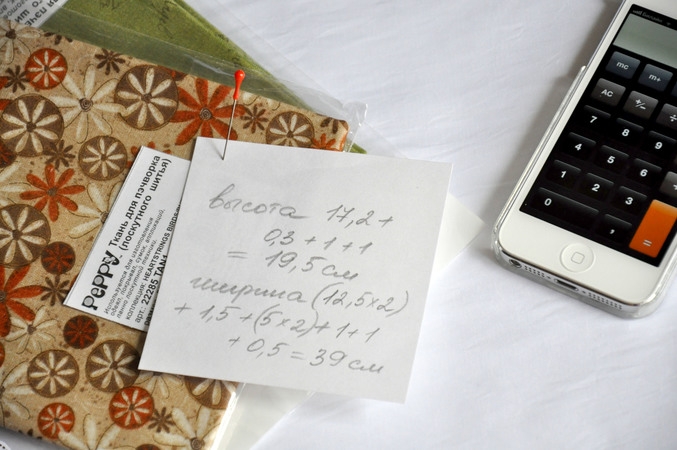 высота 17,2+
0,3+1+1
= 19,5 см
ширина (12,5×2)
+ 1,5+(5×2)+1+1
+0,5=39 см
PEPPY Ткань для пэчворка
(лоскутного шитья)
Используется для изготовления
одеял, покрывал, сумок, аппликаций,
коллекция: HEARTSTRINGS BIRDS
арт. 22285 TAN1
mc m+
AC +/− ÷
7 8 9
4 5 6
1 2 3
0 =